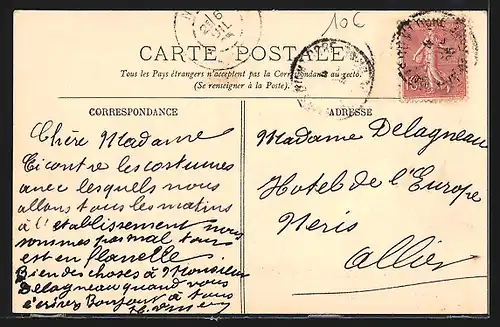 10c
CARTE POSTALE
Tous les Pays étrangers n'acceptent pas la Correspondance au recto.
(Se renseigner à la Poste).
CORRESPONDANCE
Chère Madame
Ci contre les costumes
avec lesquels nous
allons tous les matins
à l'établissement nous
sommes pas mal tous
est en flanelle.
Bien des choses à Monsieur
Delagneau quand vous
écrirez Bonjour à tous
ADRESSE
Madame Delagneau
Hotel de l'Europe
Neris
Allier